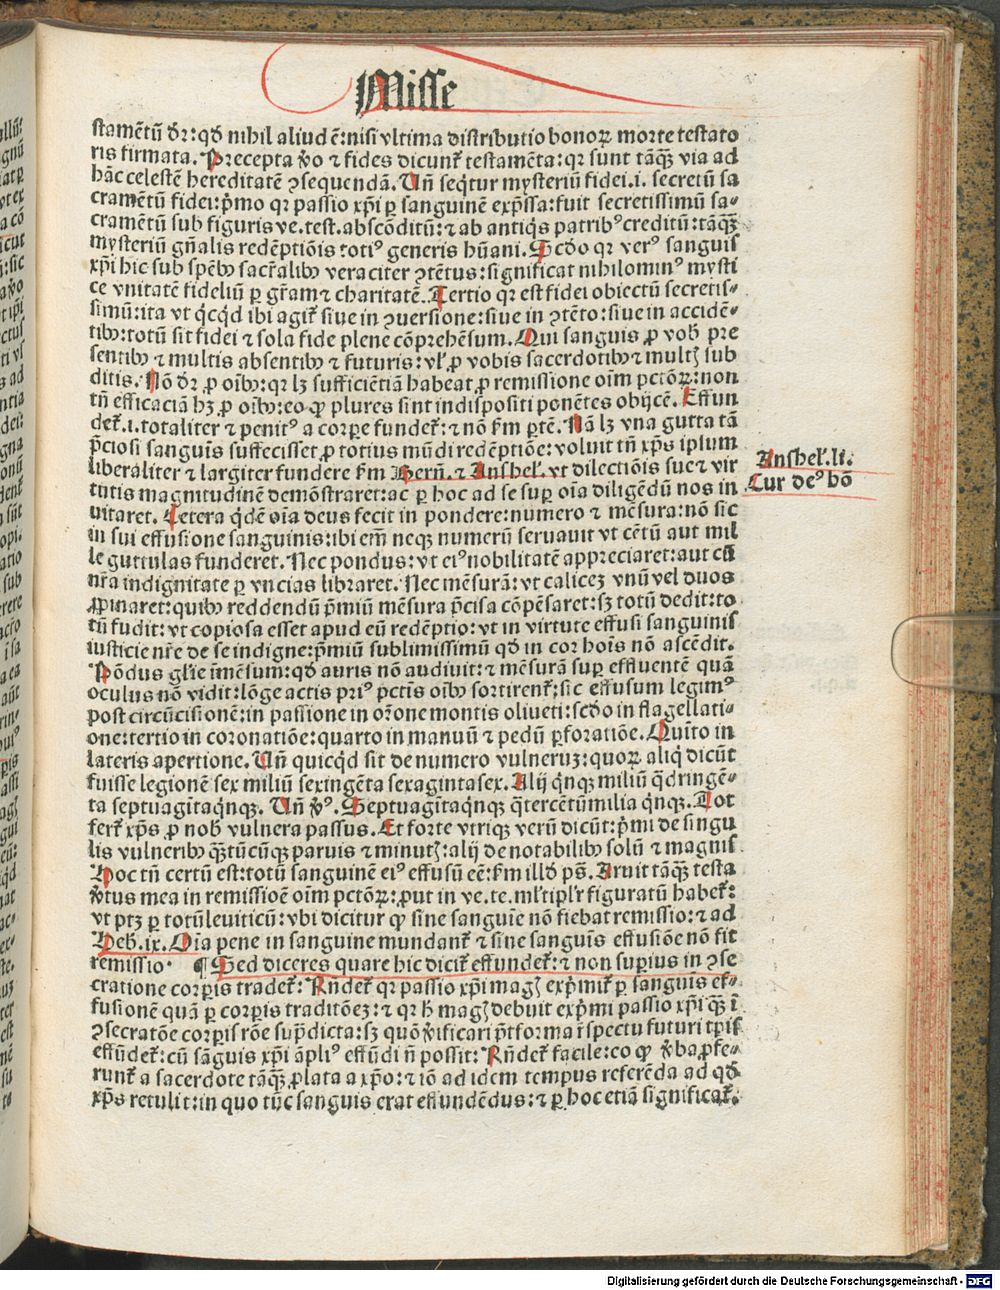 Misse
stamētū dr̄: qd nihil aliud ē: nisi vltima distributio bonoꝝ morte testato
ris firmata. Precepta ꝟo ⁊ fides dicunt̃ testamēta: qꝛ sunt tāꝗ̃ via ad
hāc celestē hereditatē ꝯsequendā. Vn̄ seq̇tur mysteriū fidei .i. secretū sa
cramētū fidei: pͥmo qꝛ passio xp̄i ꝑ sanguinē exp̄ssa: fuit secretissimū sa⸗
cramētū sub figuris ve. test. abscōditū: ⁊ ab antiq̇s patribꝰ creditū: tāꝗ̃
mysteriū gn̄alis redēptiōis totiꝰ generis hūani. Scd̄o qꝛ verꝰ sanguis
xp̄i hic sub spēbꝫ sacr̄alibꝫ veraciter ꝯtētus: significat nihilominꝰ mysti
ce vnitatē fideliū ꝑ gr̄am ⁊ charitatē. Tertio qꝛ est fidei obiectū secretis⸗
simū: ita vt q̇cq̇d ibi agit̃ siue in ꝯuersione: siue in ꝯtēto: siue in accidē⸗
tibꝫ: totū sit fidei ⁊ sola fide plene cōprehēsum. Qui sanguis ꝓ vob̄ pre
sentibꝫ ⁊ multis absentibꝫ ⁊ futuris: vl̓ ꝓ vobis sacerdotibꝫ ⁊ multꝭ sub
ditis. Nō dr̄ ꝓ oībꝫ: qꝛ lꝫ sufficiētiā habeat ꝓ remissione oīm pctōꝝ: non
tn̄ efficaciā hꝫ ꝓ oībꝫ: eo ꝙ plures sint indispositi ponētes obijcē. Effun
det̃ .i. totaliter ⁊ penitꝰ a corpe fundet̃: ⁊ nō ẜm ꝑtē. Nā lꝫ vna gutta tā
p̄ciosi sanguis suffecisset ꝓ totius mūdi redēptiōe: voluit tn̄ xp̄s ipsum
liberaliter ⁊ largiter fundere ẜm Bern̄. ⁊ Anshel̓. vt dilectiōis sue ⁊ vir
tutis magnitudinē demōstraret: ac ꝑ hoc ad se suꝑ oīa diligēdū nos in
uitaret. Cetera q̇dē oīa deus fecit in pondere: numero ⁊ mēsura: nō sic
in sui effusione sanguinis: ibi em̄ neqꝫ numerū seruauit vt cētū aut mil
le guttulas funderet. Nec pondus: vt eiꝰ nobilitatē appreciaret: aut cū
nr̄a indignitate ꝑ vncias libraret. Nec mēsurā: vt caliceꝫ vnū vel duos
ꝓpinaret: quibꝫ reddendū p̄miū mēsura p̄cisa cōpēsaret: sꝫ totū dedit: to
tū fudit: vt copiosa esset apud eū redēptio: vt in virtute effusi sanguinis
iusticie nr̄e de se indigne: p̄miū sublimissimū qd in cor hoīs nō ascēdit.
Pōdus gl̓ie īmēsum: qd auris nō audiuit: ⁊ mēsurā suꝑ effluentē quā
oculus nō vidit: lōge actis priꝰ pctīs oībꝫ sortirent̃: sic effusum legimꝰ
post circūcisionē: in passione in or̄one montis oliueti: scd̄o in flagellati⸗
one: tertio in coronatiōe: quarto in manuū ⁊ pedū ꝑforatiōe. Quīto in
lateris apertione. Vn̄ quicq̇d sit de numero vulneruꝫ: quoꝝ aliq̇ dicūt
fuisse legionē sex miliū sexingēta sexagintasex. Alij q̇nqꝫ miliū q̄dringē⸗
ta septuagītaq̇nqꝫ. Vn̄ ꝟꝰ. Septuagītaq̇nqꝫ q̄tercētū milia q̇nqꝫ. Tot
fert̃ xp̄s ꝓ nob̄ vulnera passus. Et forte vtriqꝫ verū dicūt: pͥmi de singu
lis vulneribꝫ ꝗ̃tūcūqꝫ paruis ⁊ minutꝭ: alij de notabilibꝫ solū ⁊ magnis
Hoc tn̄ certū est: totū sanguinē eiꝰ effusū eē: ẜm illd̄ ps̄. Aruit tāꝗ̃ testa
ꝟtus mea in remissiōē oīm pctōꝝ: ꝓut in ve. te. ml̓tipl̓r figuratū habet̃:
vt ptꝫ ꝑ totū leuiticū: vbi dicitur ꝙ sine sanguīe nō fiebat remissio: ⁊ ad
Heb. ix. Oīa pene in sanguine mundant̃ ⁊ sine sanguīs effusiōe nō fit
remissio. ¶ Sed diceres quare hic dicit̃ effundet̃: ⁊ non suꝑius in ꝯse
cratione corꝑis tradet̃: Rn̄det̃ qꝛ passio xp̄i magꝭ expͥmit̃ ꝑ sanguīs ef⸗
fusionē quā ꝑ corꝑis traditōeꝫ: ⁊ qꝛ h̄ magꝭ debuit expͥmi passio xp̄i ꝗ̃ ī
ꝯsecratōe corꝑis rōe sup̄dicta: sꝫ quō ꝟificari p̄t forma ī respectu futuri tꝑis
effūdet̃: cū sāguis xp̄i āpliꝰ effūdi n̄ possit: Rn̄det̃ facile: eo ꝙ ꝟba ꝓfe⸗
runt̃ a sacerdote tāꝗ̃ ꝓlata a xp̄o: ⁊ iō ad idem tempus referēda ad qd
xp̄s retulit: in quo tūc sanguis erat effundēdus: ⁊ ꝑ hoc etiā significat̃.
Anshel̓. li.
Cur deꝰ hō
Digitalisierung gefördert durch die Deutsche Forschungsgemeinschaft - DFG